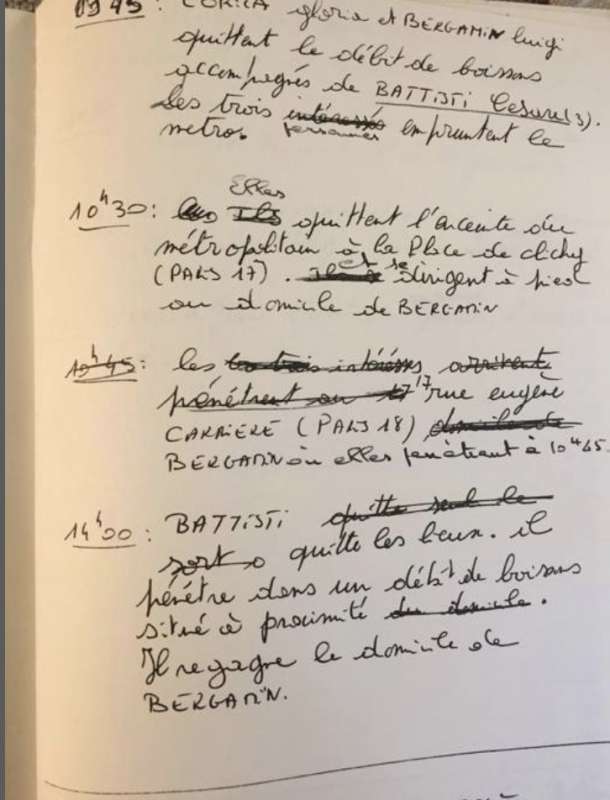 09H45 : CORICA gloria et BERGAMIN luigi
quittent le débit de boissons
accompagnés de BATTISTI Cesare (3).
Les trois intéressés personnes empruntent le
métro.
Elles
10H30 : Ils quittent l'enceinte du
métropolitain à la Place de clichy
(PARIS 17). et se dirigent à pied
au domicile de BERGAMIN
10H45 : les trois intéressés arrivent
pénètrent au 17 17 rue eugène
CARRIERE (PARIS 18) domicile de
BERGAMIN où elles pénètrent à 10H45.
14H00 : BATTISTI quitte seul le
sort quitte les lieux. il
pénètre dans un débit de boissons
situé à proximité du domicile.
Il regagne le domicile de
BERGAMIN.